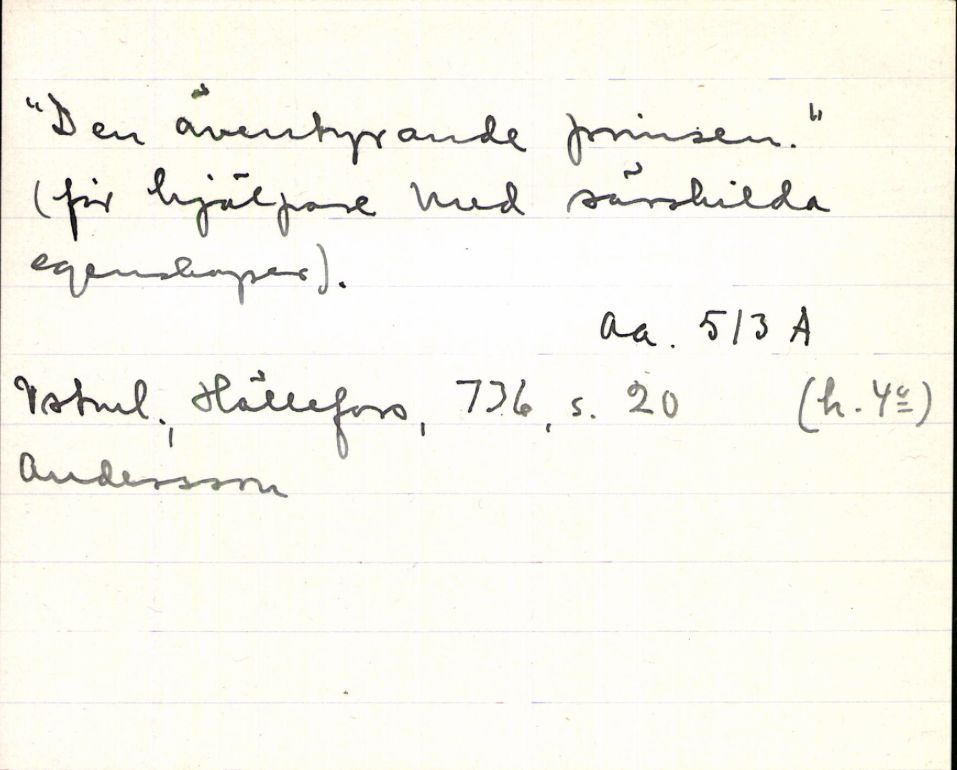 "Den äventyrande prinsen."
(får hjälpare med särskilda
egenskaper).
Aa. 513 A
Vstml., Hällefors, 736, s. 20 (h. 4º)
Andersson